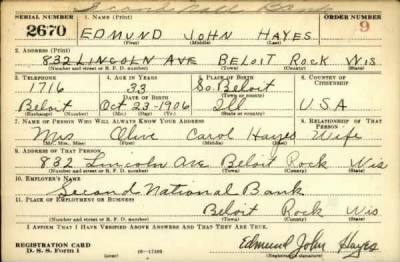 Second Natl Bank
SERIAL NUMBER 1. NAME (Print) ORDER NUMBER
2670 EDMUND JOHN HAYES 9
(First) (Middle) (Last)
2. ADDRESS (Print)
832 LINCOLN AVE BELOIT ROCK WIS
(Number and street or R. F. D. number) (Town) (County) (State)
3. TELEPHONE 4. AGE IN YEARS 5. PLACE OF BIRTH 6. COUNTRY OF CITIZENSHIP
1716 33 So. Beloit
DATE OF BIRTH (Town or county)
Beloit Oct 23-1906 Ill U.S.A
(Exchange) (Number) (Mo.) (Day) (Yr.) (State or country)
7. NAME OF PERSON WHO WILL ALWAYS KNOW YOUR ADDRESS 8. RELATIONSHIP OF THAT PERSON
Mrs Olive Carol Hayes Wife
(Mr., Mrs., Miss) (First) (Middle) (Last)
9. ADDRESS OF THAT PERSON
832 Lincoln Ave Beloit Rock Wis
(Number and street or R. F. D. number) (Town) (County) (State)
10. EMPLOYER'S NAME
Second National Bank
11. PLACE OF EMPLOYMENT OR BUSINESS
Beloit Rock Wis
(Number and street or R. F. D. number) (Town) (County) (State)
I AFFIRM THAT I HAVE VERIFIED ABOVE ANSWERS AND THAT THEY ARE TRUE.
REGISTRATION CARD
D. S. S. Form 1 Edmund John Hayes
(over) 16-17105 (Registrant's signature)